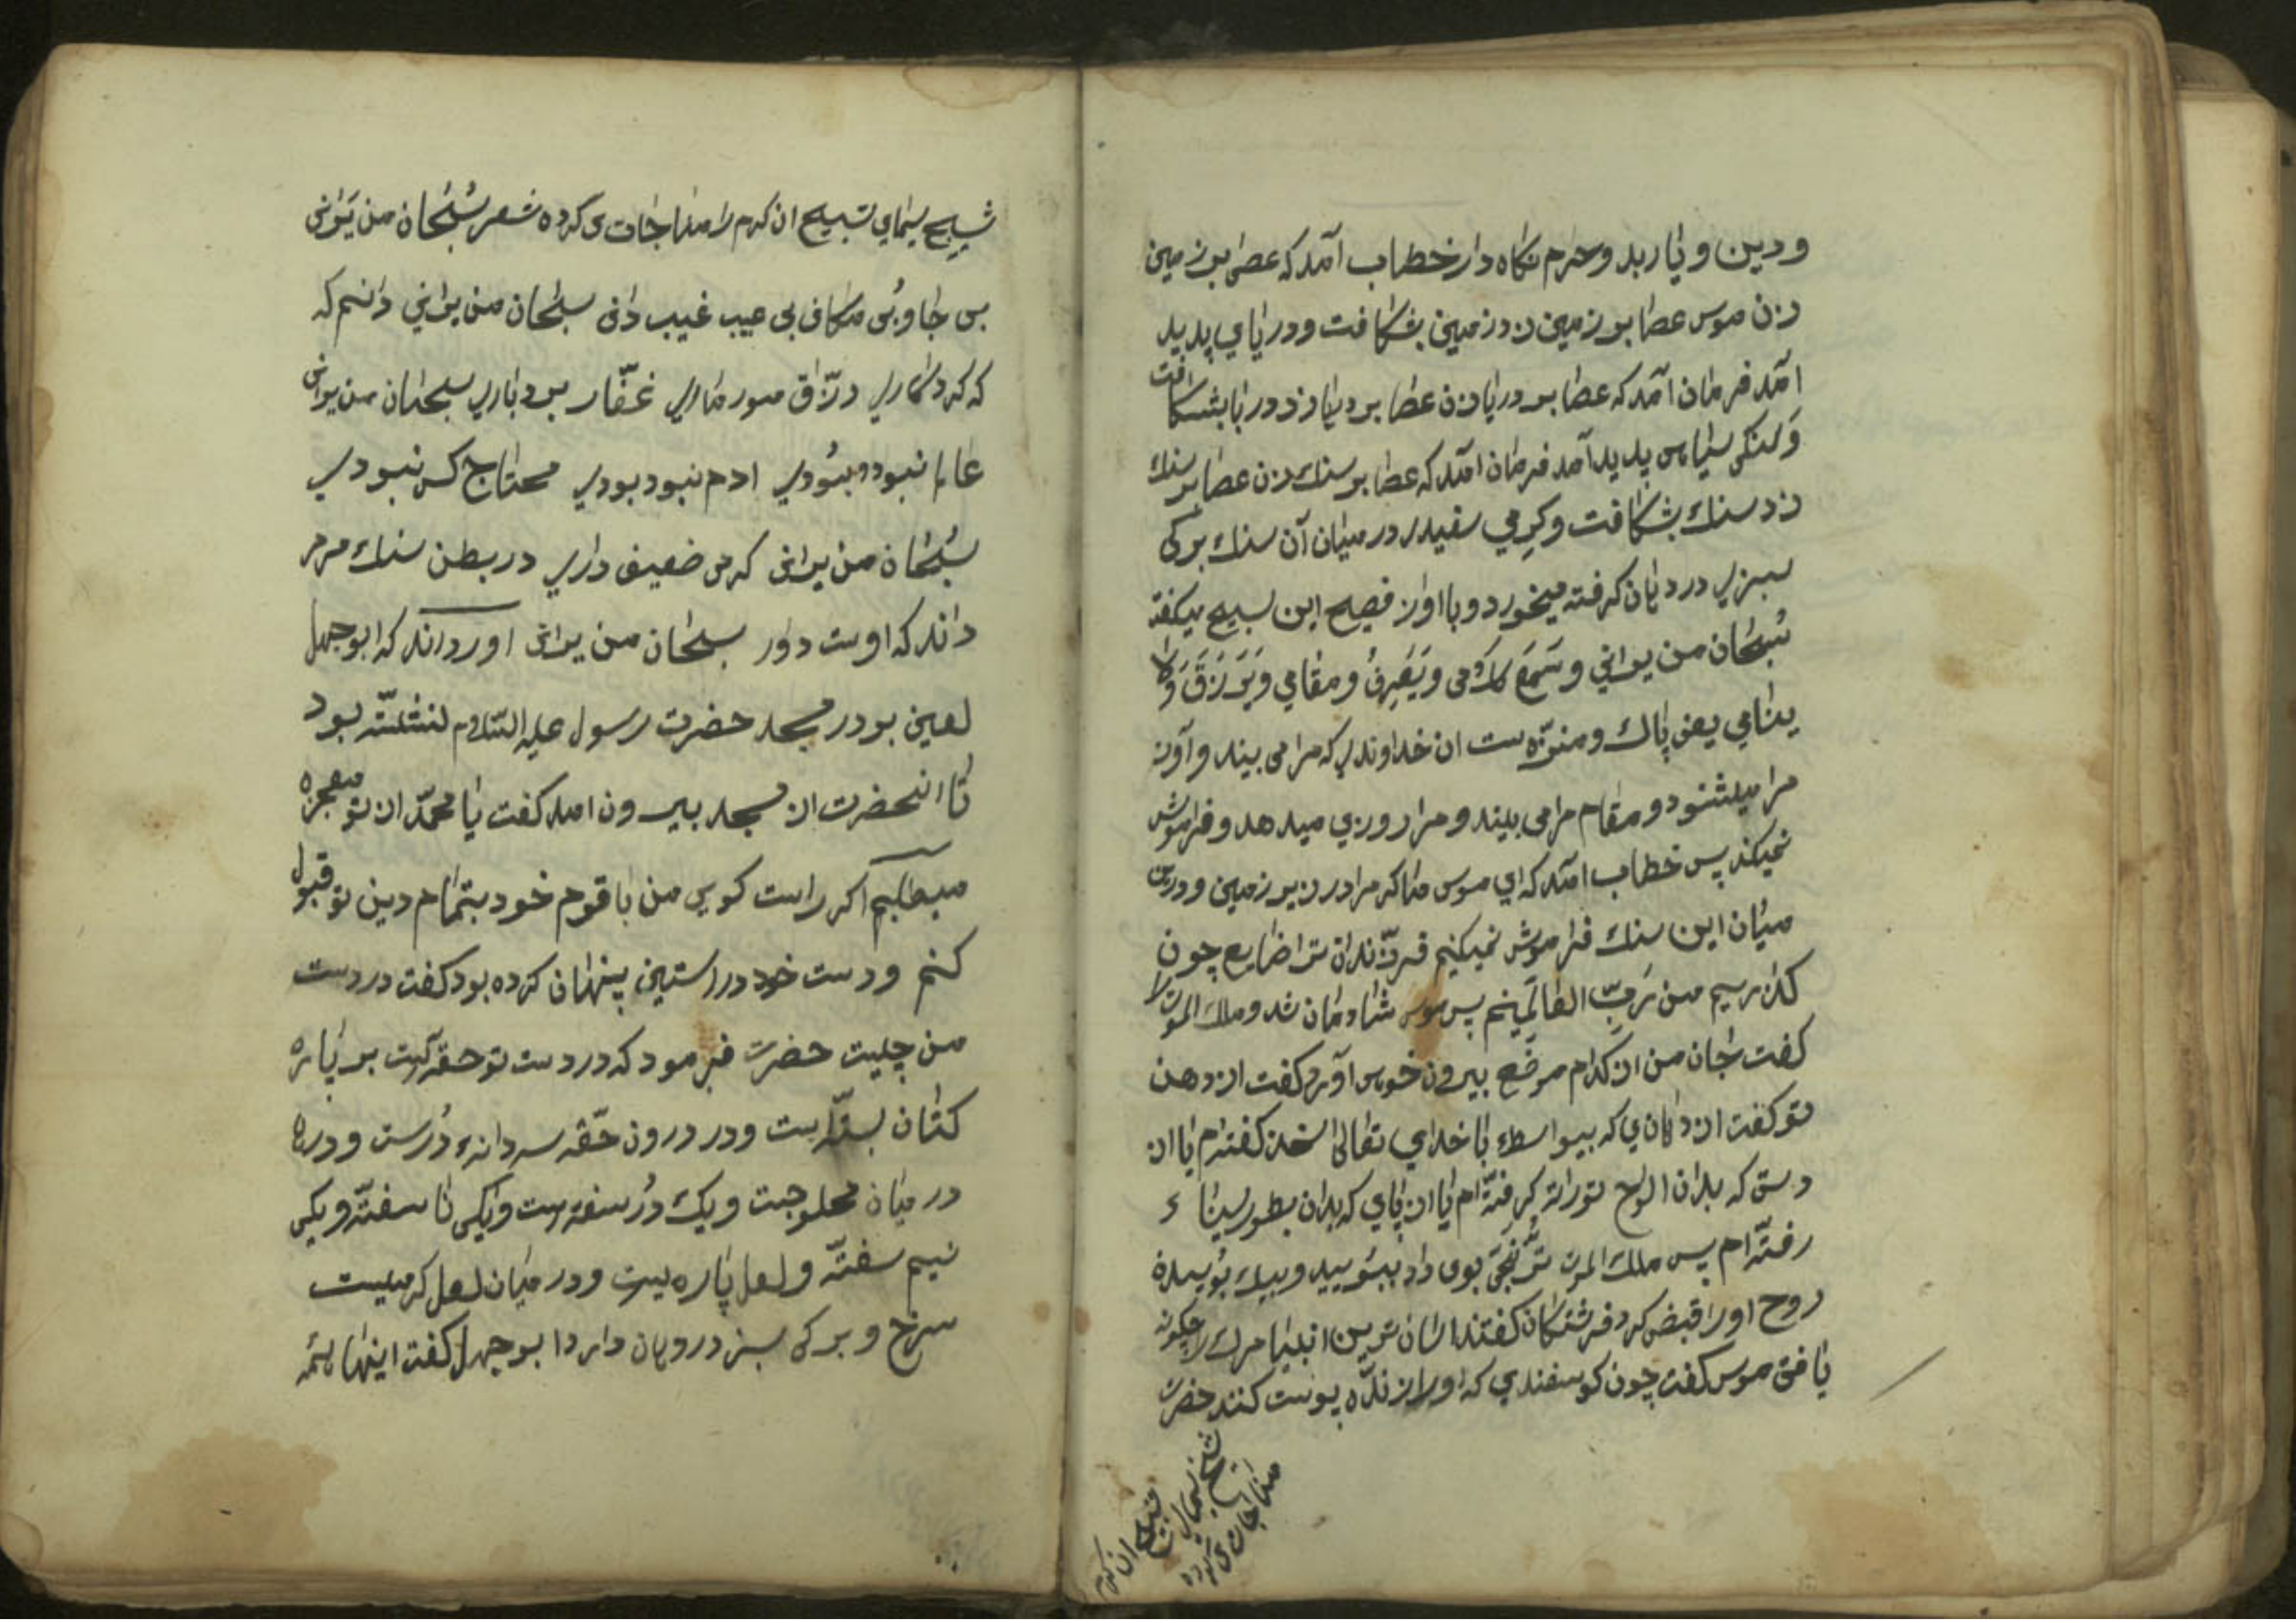 ودین و یار بد و حرم نکاه دار خطاب آمد که عصی بر زمین
زن موسی عصا بر زمین زد زمین بشکافت و دریای پدید
امد فرمان آمد که عصا بر دریا زن عصا بر دریا زد دریا بشکافت
و سنکی سیاه پدید آمد فرمان امد که عصا بر سنك زن عصا بر سنك
زد سنك بشکافت و کرمی سفید در میان آن سنك برکی
سبزی در دهان کرفته میخورد و با اواز فصیح این تسبیح میکفت
سُبْحٰان من یرانی و سَمَعَ کلامی و یَعْرِفُ و مقامی وَیَرزَقَ وَلا
ینامی یعنی پاك و منزّه ست ان خداوندی که مرا می بیند و آوز
مرا میشنود و مقام مرا می بیند و مرا روزی میدهد و فراموش
نمیکند پس خطاب امد که ای موسی ما که مرا در زیر زمین و دریا
میان این سنك فراموش نمیکنیم فرزندان ترا ضایع چون
کذاریم من رَبّ العالَمینم پس موسی شادمان شد و ملك الموت را
کفت جان من از کدام موضع بیرون خوهی آورد کفت از دهن
تو کفت از دهانی که بیواسطه با خدای تعالی سخن کفته‌ام یا از
دستی که بدان الواح توراة کرفته ام یا از پای که بدان بطور سیناء
رفته ام پس ملك الموت تُرُنْجَی بوی داد ببویید و بیك بوییدن
روح او را قبض کرد فرشتکان کفتند اسان ترین انبیا مرك را چکونه
یافتی موسی کفت چون کوسفندی که او را زنده پوست کنند حضرت
شیح سیمای تسبیح ان کرم را مناجات می کرده
شیح سیمای تسبیح ان کرم را مناجات می کرده شعر سُبْحٰان من یَرٰانی
بی جا و بی مکانی بی عیب غیب دانی سبحان من یرانی دانم که
که کردکاری رزّاق مور ماری غفّار بردباری سبحان من یرانی
عالم نبود و بودی ادم نبود بودی محتاج کس نبودی
سُبْحٰان من یرانی کرمی ضعیف داری در بطن سنك مرمر
داند که اوست داور سبحان من یرانی اورده‌اند که ابوجهل
لعین بو در مسجد حضرت رسول علیه السّلام نشسته بود
تا انحضرت از مسجد بیرون امد کفت یا محمّد از تو معجزه
میطلبم اکر راست کویی من با قوم خود بتمام دین تو قبول
کنم و دست خود در استین پنهان کرده بود کفت در دست
من چیست حضرت فرمود که در دست تو حقه ایست بر پاره
کتان بسته ست و در درون حقّه سه دانه دُرست و درها
در میان محلوجست و یک دُر سفته ست و یکی نا سفته و یکی
نیم سفته و لعل پاره یست و در میان لعل کرمیست
سرخ و برکی سبز در دهان دارد ابوجهل کفت اینها همه